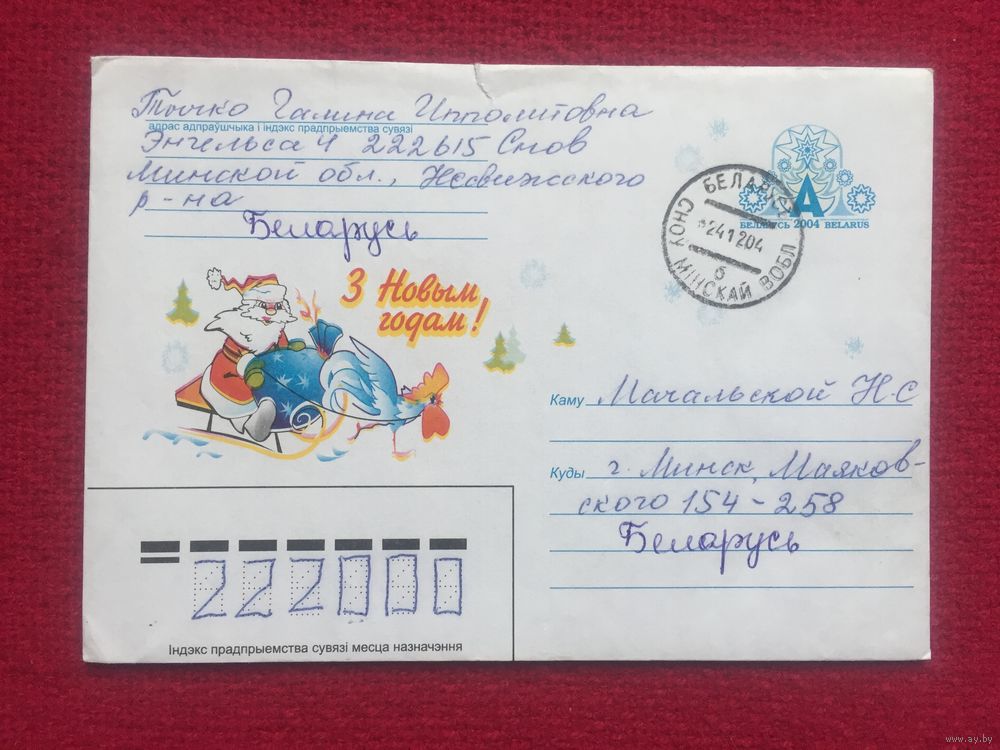 Точко Галина Ипполитовна
адрас адпраўшчыка і індэкс прадпрыемства сувязі
Энгельса 4 222615 Снов
Минской обл., Несвижского
р-на
Беларусь
З Новым
годам!
A
БЕЛАРУСЬ 2004 BELARUS
БЕЛАРУСЬ
241204
б
СНОЎ МІНСКАЙ ВОБЛ
Каму Мачальской Н.С
Куды г. Минск, Маяков-
ского 154-258
Беларусь
222000
Індэкс прадпрыемства сувязі месца назначэння
www.ay.by